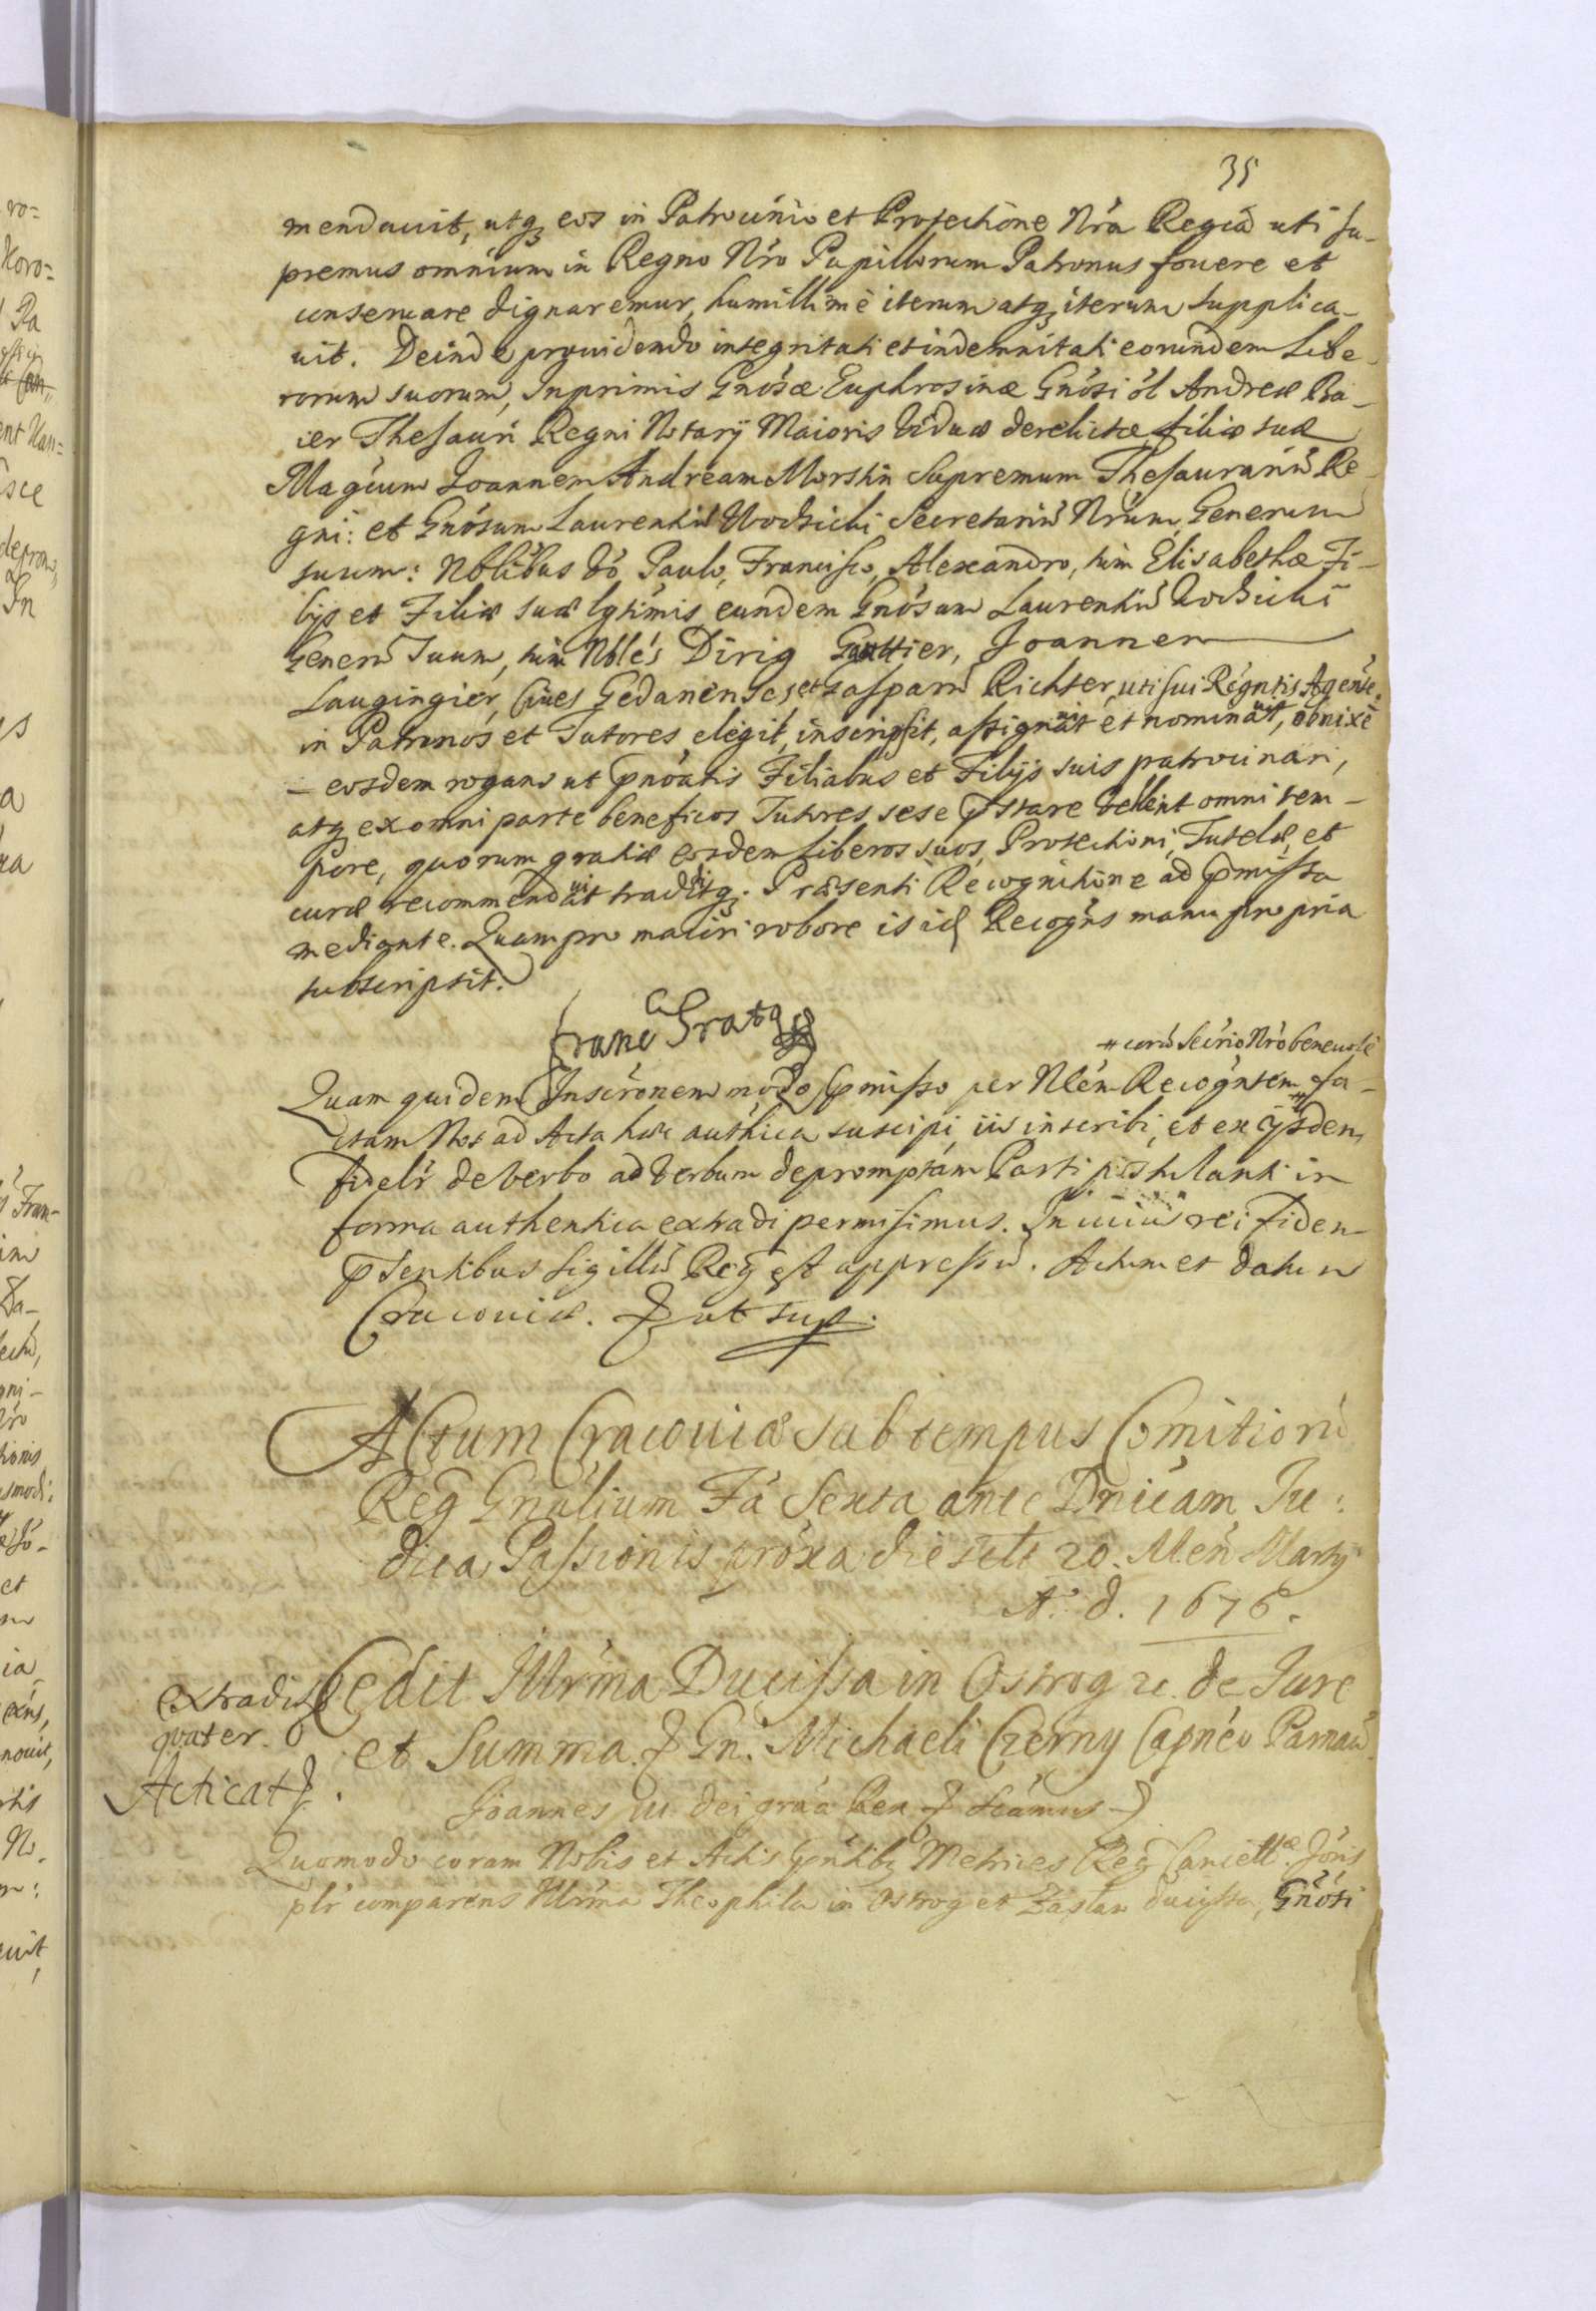 35
mendauit, utq̃ eos in Patrocinio et Protectione Nrã Regia uti su-
premus omnium in Regno Nrõ Pupillorum Patronus fouere et
conseruare dignaremur, humillimè iterum atq̃ iterum supplica-
uit. Deinde prouidendo integritati et indemnitati eorundem Libe-
rorum suorum, Inprimis Gnosæ Euphrosinæ Gnosi ol Andreæ Ba-
ier Thesauri Regni Notarij Maioris Viduæ derelictæ filiæ suæ
Magcum Joannem Andream Morstin Supremum Thesaurariũ Re-
gni: et Gnosum Laurentiũ Wodzicki Secretariũ Nrum, Generum
suum: Nblibus vò Paulo, Francisco, Alexandro, tum Elisabethæ Fi-
lijs et Filiæ suæ lgtimis eundem Gnosum Laurentiũ Wodzicki
Generũ suum, tum Nbles Dirig Gauttier, Joannem
Laugingier, Ciues Gedanenses, et Casparũ Richter, uti sui Regntis Agente
in Patronos et Tutores elegit, inscripsit, assignauit et nominauit, obnixè
eosdem rogans ut pnoatis Filiabus et Filijs suis patrocinari,
atq̃ ex omni parte beneficos Tutores sese pstare vellent omni tem-
pore, quorum gratiæ eosdem Liberos suos, Protectioni, Tutelæ, et
curæ recommendauit tradiditq̃. Præsenti Recognitione ad pmissa
mediante. Quam pro maiori robore is id Recogns manu propria
subscripsit.
Franc Gratta
# corã Secrio Nro beneuole
Quam quidem Inscronem modo pmisso per Nlem Recogntem # fa-
ctam Nos ad Acta hæc authica suscipi, iis inscribi, et ex ijsdem
fidelr de verbo ad verbum depromptam Parti postulanti in
forma authentica extradi permisimus. In cuiũ rei fidem
psentibus Sigillũ Reg est appressũ. Actum et datum
Cracouiæ. & ut sup.
Actum Cracouiæ sub tempus Comitiorũ
Reg Gnalium Fa Sexta ante Dnicam Ju:
dica Passionis proxa die sclt 20. Men Martij
A. d. 1676.
extradit
quater.
Acticat &.
Cedit Illrma Ducissa in Ostrog &. de Jure
et Summa & Gn. Michaeli Czerny Capneo Parnaw.
Joannes III dei gra Rex & Scamus &
Quomodo coram Nobis et Actis pntibq̃ Metrices Reg Cancellæ Jonis
plr comparens Illrma Theophila in Ostrog et Zaslaw ducissa, Gnosi